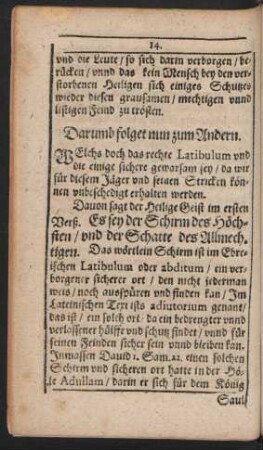 14.
vnd die Leute / so sich darin verborgen / be-
rücken / vnnd das kein Mensch bey den ver-
storbenen Heiligen sich einiges Schutzes
wieder diesen grausamen / mechtigen vnnd
listigen Feind zu trösten.
Darumb folget nun zum Andern.
WElchs doch das rechte Latibulum vnd
die einige sichere gewarsam sey / da wir
für diesem Jäger vnd seinen Stricken kön-
nen vnbeschedigt erhalten werden.
Dauon sagt der Heilige Geist im ersten
Verß. Es sey der Schirm des Höch-
sten / vnd der Schatte des Allmech-
tigen. Das wörtlein Schirm ist im Ebre-
ischen Latibulum oder abditum / ein ver-
borgener sicherer ort / den nicht jederman
weis / noch ausspüren vnd finden kan / Im
Lateinischen Text ists adiutorium genant /
das ist / ein solch ort / da ein bedrengter vnnd
verlossener hülffe vnd schutz findet / vnnd für
seinen Feinden sicher sein vnnd bleiben kan.
Inmassen Dauid 1. Sam. 22. einen solchen
Schirm vnd sicheren ort hatte in der Hö-
le Adullam / darin er sich für dem König
Saul